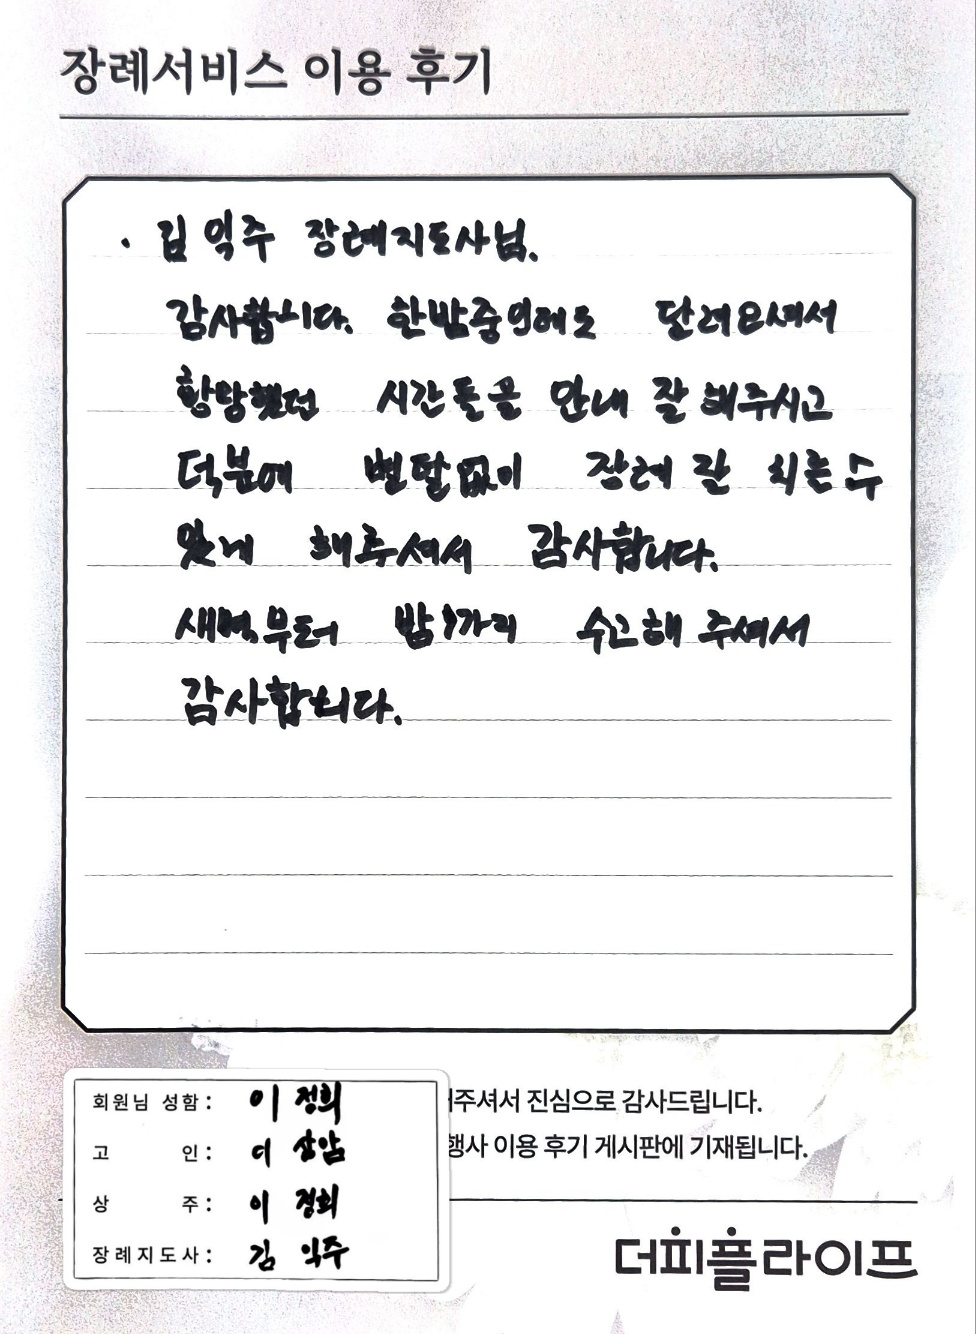 장례서비스 이용 후기
· 김익주 장례지도사님.
감사합니다. 한밤중인에도 달려오셔서
황망했던 시간들을 안내 잘 해주시고
덕분에 별탈없이 장례 잘 치를수
있게 해주셔서 감사합니다.
새벽부터 밤까지 수고해 주셔서
감사합니다.
회원님 성함: 이 정희
고 인: 이
상 주: 이 정희
장례지도사: 김 익주
주셔서 진심으로 감사드립니다.
행사 이용 후기 게시판에 기재됩니다.
더피플라이프